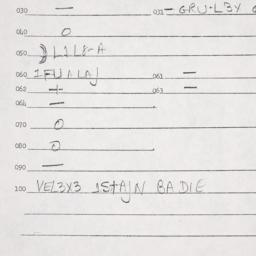 030 — 031 — GRU·L3Y
040 O
050 L1L8-A
060 1FUALAJ 061 —
062 + 063 —
064 —
070 O
080 O
090 —
100 VEL3X3 1STAJN 8ADIE